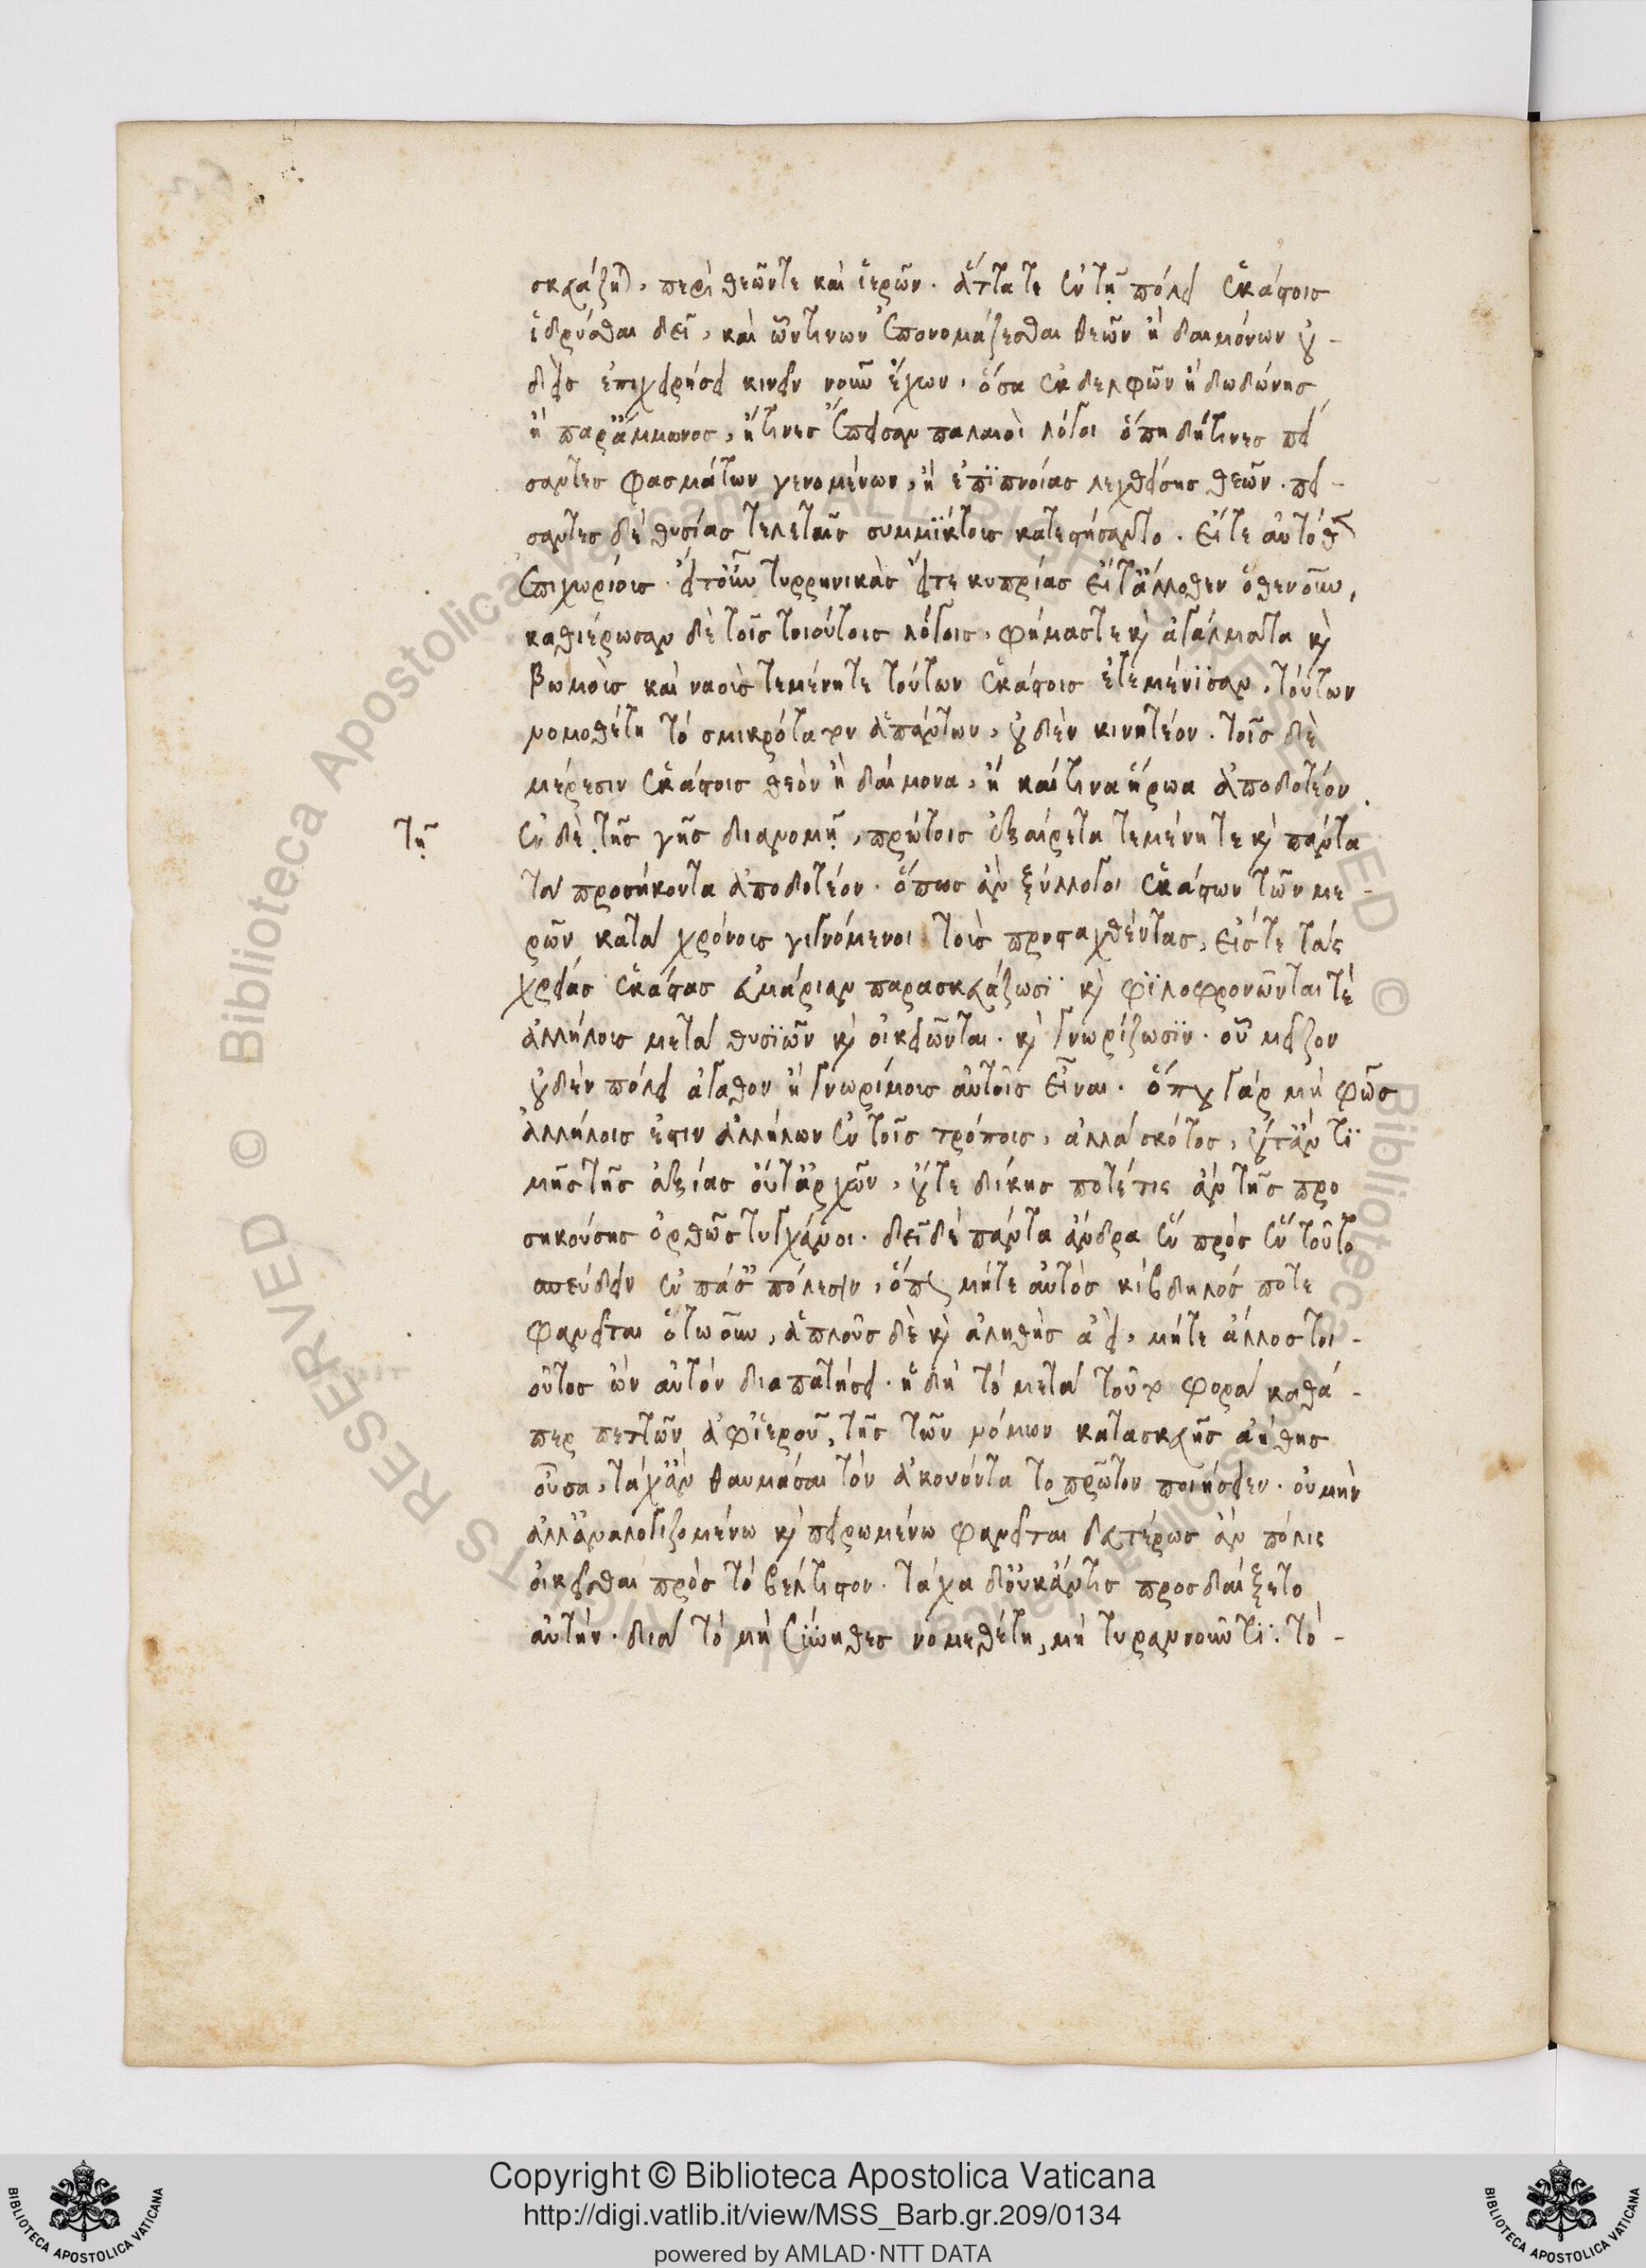 σκευάζηται, περὶ θεῶντε καὶ ἱερῶν. ἅττατε ἐν τῇ πόλει ἑκάστοις
ἱδρύσθαι δεῖ, καὶ ὧντινων ἐπονομάζεσθαι θεῶν ἢ δαιμόνων οὐ-
δεὶς ἐπιχειρήσει κινεῖν νοῦν ἔχων, ὅσα ἐκ δελφῶν ἢ δωδώνης
ἢ παρἄμμωνος, ἤ τινες ἔπεισαν παλαιοὶ λόγοι ὅπη δήτινες πεί
σαντες φασμάτων γενομένων, ἢ ἐπϊπνοίας λεχθείσης θεῶν. πεί-
σαντες δὲ θυσίας τελεταῖς συμμϊκτοις κατεστήσαντο. εἴτε αὐτόθεν
ἐπιχωρίοις εἴτοὖν τυρρηνικὰς εἴτε κυπρίας εἴτἄλλοθεν ὅθενοῦν,
καθιέρωσαν δὲ τοῖς τοιούτοις λόγοις, φήμαςτε καὶ ἀγάλματα καὶ
βωμοὺς καὶ ναοὺς τεμένητε τούτων ἑκάστοις ἐτεμένϊσαν, τούτων
νομοθέτη τὸ σμικρότατον ἁπάντων, οὐδὲν κινητέον. τοῖς δὲ
μέρεσιν ἑκάστοις θεὸν ἢ δαίμονα, ἢ καίτινα ἥρωα ἀποδοτέον.
τῇ
ἐν δὲ τῆς γῆς διανομῇ, πρώτοις ἐξαίρετα τεμένη τε καὶ πάντα
τὰ προσήκοντα ἀποδοτέον. ὅπως ἂν ξύλλογοι ἑκάστων τῶν με-
ρῶν κατὰ χρόνους γιγνόμενοι τοὺς προσταχθέντας, εἴς τε τὰς
χρείας ἑκάστας εὐμάριαν παρασκευάζωσϊ καὶ φϊλοφρονῶνται τὲ
ἀλλήλους μετὰ θυσϊῶν καὶ οἰκειῶνται. καὶ γνωρίζωσϊν. οὗ μεῖζον
οὐδὲν πόλει ἀγαθον ἢ γνωρίμους αὐτοὺς εἶναι. ὅπου γὰρ μὴ φῶς
ἀλλήλοις ἐστιν ἀλλήλων ἐν τοῖς τρόποις, ἀλλὰ σκότος, οὔτἂν τϊ
μῆς τῆς ἀξίας οὔτἀρχῶν, οὔτε δίκης ποτέ τις ἂν τῆς προ
σηκούσης ὀρθῶς τυγχάνοι. δεῖ δὲ πάντα ἄνδρα ἓν πρὸς ἓν τοῦτο
σπεύδειν ἐν πάσαις πόλεσιν, ὅπως μήτε αὐτὸς κίβδηλός ποτε
φανεῖται ὅτωοῦν, ἁπλοῦς δὲ καὶ ἀληθὴς ἀεὶ, μήτε ἄλλος τοι-
οῦτος ὢν αὐτὸν διαπατήσει. ἡ δὴ τὸ μετὰ τοῦτο φορὰ καθά-
περ πεττῶν ἀφἱεροῦ, τῆς τῶν νόμων κατασκευῆς ἀήθης
οὖσα, τάχἂν θαυμάσαι τὸν ἀκούοντα τὸ πρῶτον ποιήσειεν. οὐ μὴν
ἀλλἀναλογιζομένω καὶ πειρωμένω φανεῖται δευτέρως ἂν πόλις
οἰκεῖσθαι πρὸς τὸ βέλτιστον. τάχα δοὐκἄντις προσδέξαιτο
αὐτὴν. διὰ τὸ μὴ σύνηθες νομοθέτη, μὴ τυραννοῦντϊ. τὸ-